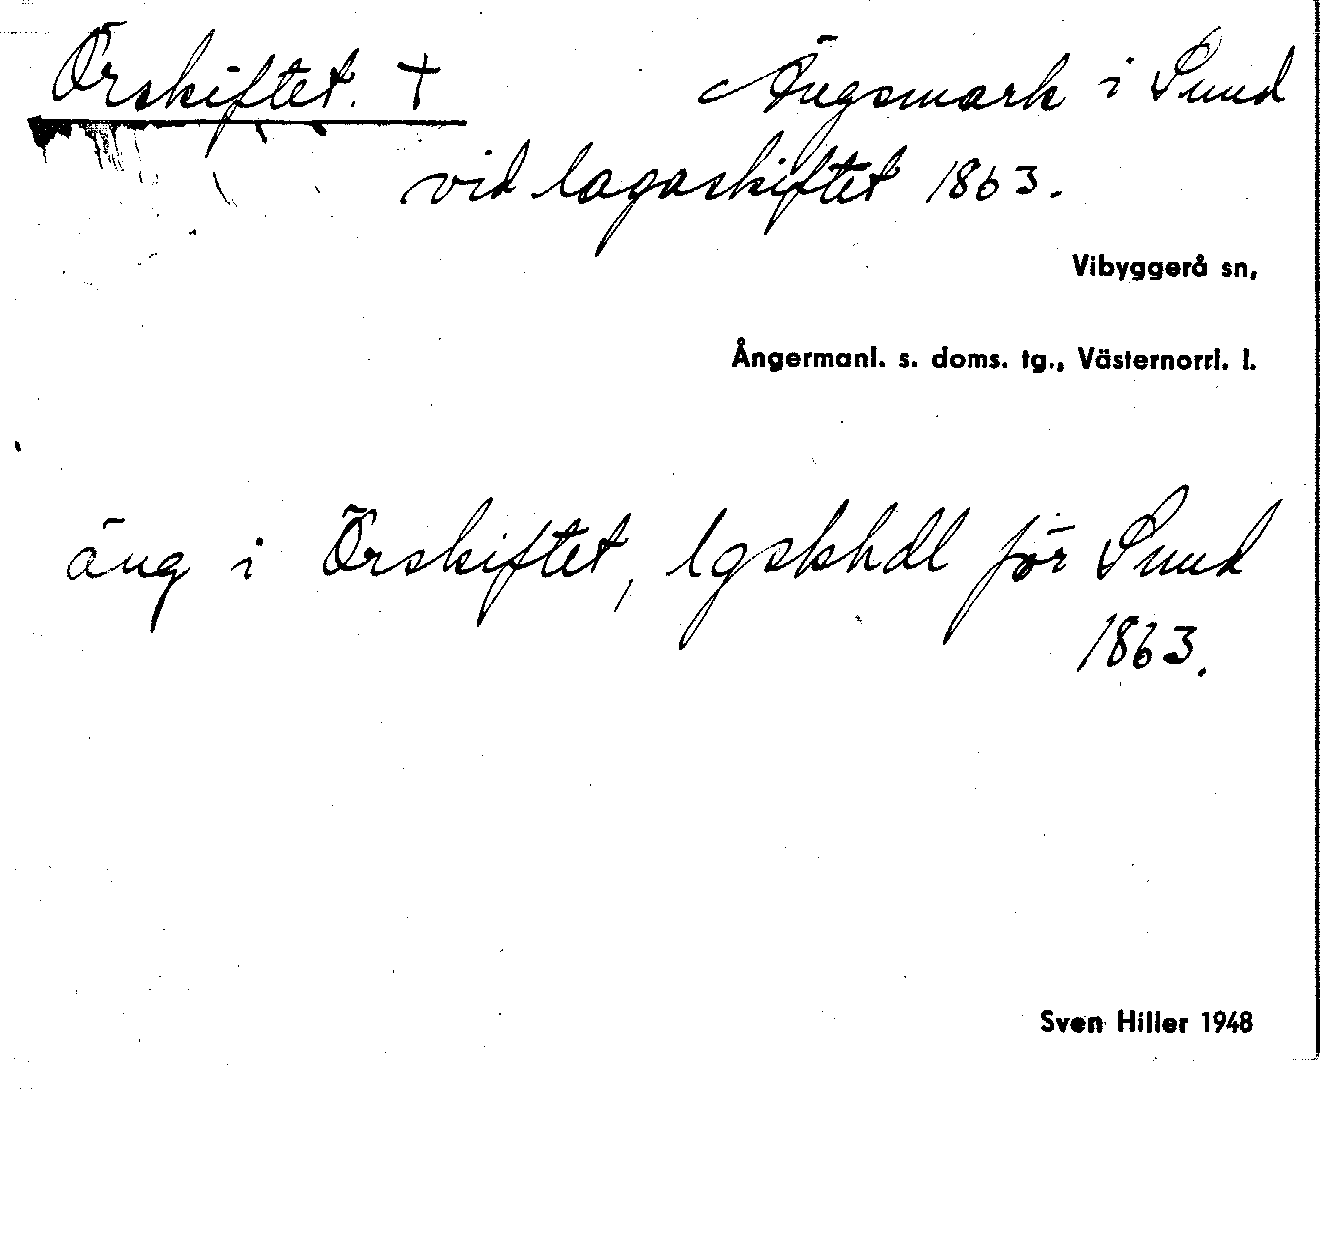 Örskiftet. + Ängsmark i Sund
vid lagaskiftet 1863.
Vibyggerå sn,
Ångermanl. s. doms. tg., Västernorrl. l.
äng i Örskiftet, lgskhdl för Sund
1863.
Sven Hiller 1948